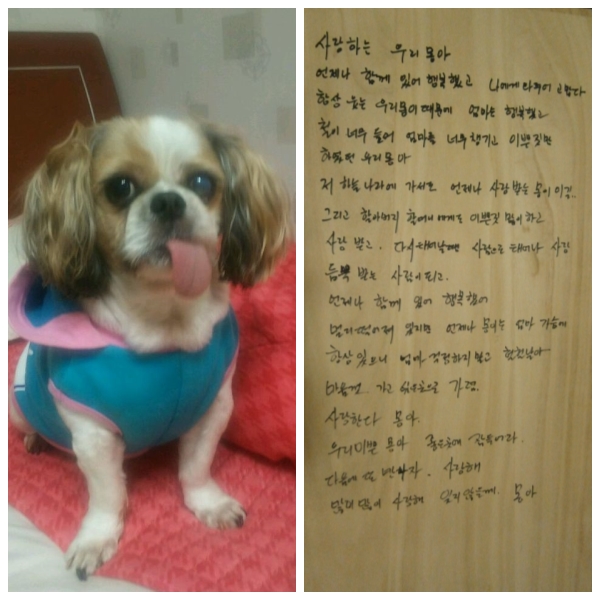 사랑하는 우리 몽아
언제나 함께 있어 행복했고 나에게 와주어 고맙다
항상 웃는 우리몽이 때문에 엄마는 행복했고
힘이 너무 들어 엄마를 너무 챙기고 이쁜짓만
하였던 우리 몽아
저 하늘나라에 가서도 언제나 사랑 받는 몽이 되길..
그리고 할아버지 할머니에게도 이쁜짓 많이 하고
사랑 받고. 다시 태어날때는 사람으로 태어나 사랑
듬뿍 받는 사람이 되고.
언제나 함께 있어 행복했어
멀리 떨어져 있지만 언제나 몽이는 엄마 가슴에
항상 있으니 엄마 걱정하지 말고
마음껏 가고 싶은곳으로 가렴.
사랑한다 몽아.
우리이쁜 몽아 좋은곳에 잠들어라.
다음에 또 만나자. 사랑해
많이 많이 사랑해 잊지 않을께. 몽아